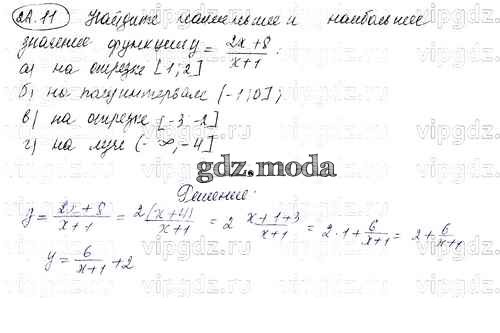 22.11 Найдите наименьшее и наибольшее
значение функции y = (2x+8)/(x+1) :
а) на отрезке [1; 2]
б) на полуинтервале (-1; 0];
в) на отрезке [-3, -2]
г) на луче (-∞, -4]
gdz.moda
Решение:
y = (2x+8)/(x+1) = 2(x+4)/(x+1) = 2 (x+1+3)/(x+1) = 2·1 + 6/(x+1) = 2 + 6/(x+1)
y = 6/(x+1) + 2
vipgdz.ru